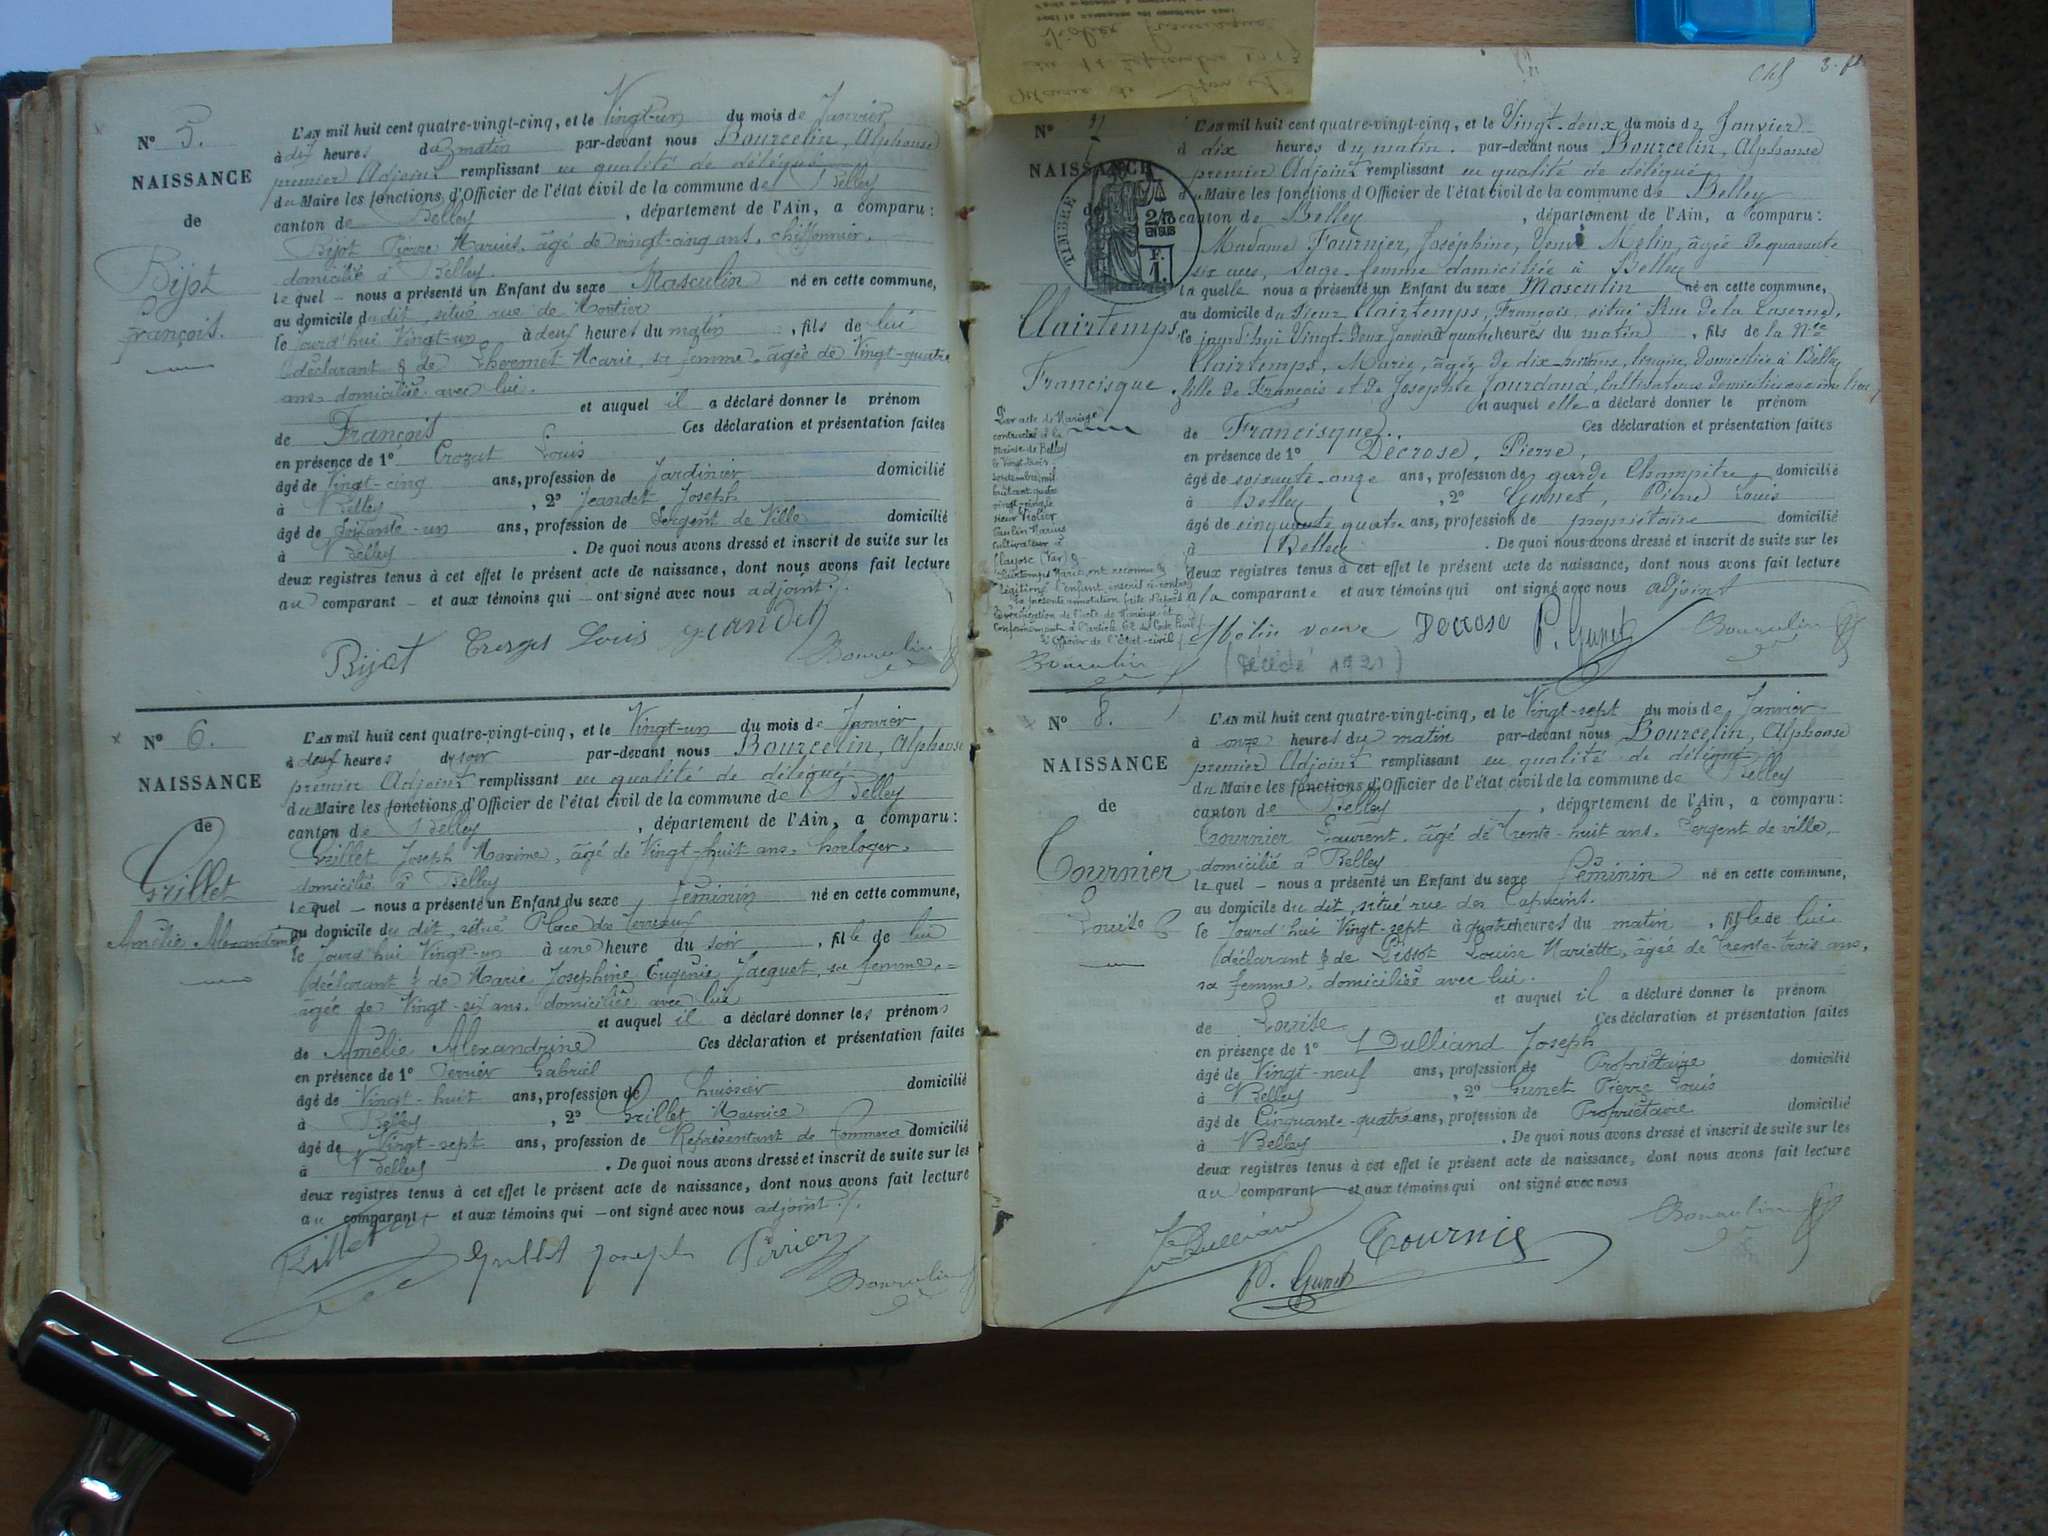 N° 5.
NAISSANCE
de
Bijot
François.
L'AN mil huit cent quatre-vingt-cinq, et le Vingt-un du mois de Janvier
à dix heures du matin par-devant nous Bourcelin, Alphonse
premier Adjoint remplissant en qualité de délégué
du Maire les fonctions d'Officier de l'état civil de la commune de Belley
canton de Belley, département de l'Ain, a comparu:
Bijot Pierre Marius, âgé de vingt-cinq ans, chiffonnier,
domicilié à Belley.
le quel – nous a présenté un Enfant du sexe Masculin né en cette commune,
au domicile du dit, situé rue de
le jourd'hui Vingt-un à deux heures du matin, fils de lui
déclarant & de Marie, sa femme, âgée de Vingt-quatre
ans, domiciliée avec lui.
et auquel il a déclaré donner le prénom
de François Ces déclaration et présentation faites
en présence de 1° Crozat Louis
âgé de Vingt-cinq ans, profession de Jardinier domicilié
à Belley, 2° Jeandet Joseph
âgé de Soixante-un ans, profession de Sergent de Ville domicilié
à Belley. De quoi nous avons dressé et inscrit de suite sur les
deux registres tenus à cet effet le présent acte de naissance, dont nous avons fait lecture
au comparant – et aux témoins qui – ont signé avec nous adjoint./.
Bijot Louis Jeandet Bourcelin
N° 6.
NAISSANCE
de
Grillet
Amélie Alexandrine
L'AN mil huit cent quatre-vingt-cinq, et le Vingt-un du mois de Janvier
à deux heures du soir par-devant nous Bourcelin, Alphonse
premier Adjoint remplissant en qualité de délégué
du Maire les fonctions d'Officier de l'état civil de la commune de Belley
canton de Belley, département de l'Ain, a comparu:
Grillet Joseph Maxime, âgé de Vingt-huit ans, horloger,
domicilié à Belley
le quel – nous a présenté un Enfant du sexe féminin né en cette commune,
au domicile du dit, situé Place des Terreaux
le jourd'hui Vingt-un à une heure du soir, fille de lui
déclarant & de Marie Josephine Eugénie Jacquet, sa femme,
âgée de Vingt-six ans, domiciliée avec lui
et auquel il a déclaré donner les prénoms
de Amélie Alexandrine Ces déclaration et présentation faites
en présence de 1° Perrier Gabriel
âgé de Vingt-huit ans, profession de huissier domicilié
à Belley, 2° Grillet Maurice
âgé de Vingt-sept ans, profession de Représentant de Commerce domicilié
à Belley. De quoi nous avons dressé et inscrit de suite sur les
deux registres tenus à cet effet le présent acte de naissance, dont nous avons fait lecture
au comparant et aux témoins qui – ont signé avec nous adjoint./.
Grillet Joseph Perrier Bourcelin
3.
N°
NAISSANCE
de
TIMBRE
2/10 EN SUS
F. 1.
Clairtemps
Francisque
L'AN mil huit cent quatre-vingt-cinq, et le Vingt-deux du mois de Janvier
à dix heures du matin par-devant nous Bourcelin, Alphonse
premier Adjoint remplissant en qualité de délégué
du Maire les fonctions d'Officier de l'état civil de la commune de Belley
canton de Belley, département de l'Ain, a comparu:
Madame Fournier, Joséphine, Veuve Melin, âgée de quarante
six ans, Sage-femme domiciliée à Belley
la quelle nous a présenté un Enfant du sexe Masculin né en cette commune,
au domicile du Sieur Clairtemps, François situé Rue de la Caserne,
le jourd'hui Vingt-deux Janvier à quatre heures du matin, fils de la
Clairtemps, Marie, âgée de ans, domiciliée à Belley
fille de François et de Josephte Jourdand, Cultivateurs
et auquel elle a déclaré donner le prénom
de Francisque. Ces déclaration et présentation faites
en présence de 1° Decrose, Pierre,
âgé de soixante-onze ans, profession de garde Champêtre domicilié
à Belley, 2° Gunet, Pierre Louis
âgé de cinquante quatre ans, profession de propriétaire domicilié
à Belley. De quoi nous avons dressé et inscrit de suite sur les
deux registres tenus à cet effet le présent acte de naissance, dont nous avons fait lecture
à la comparante et aux témoins qui ont signé avec nous adjoint
Par acte de Mariage
contracté à la
Mairie de Belley
le Vingt-trois
septembre mil
huit cent quatre
vingt-cinq, le
sieur Violier
Paulin Marius
cultivateur à
Flayosc (Var) &
Clairtemps Marie, ont reconnu &
légitimé l'enfant inscrit ci-contre
La présente annotation faite d'après
de l'acte de Mariage et
conformément à l'article 62 du Code Civil
L'Officier de l'état-civil
Bourcelin
Mélin veuve Decrose P. Gunet Bourcelin
(Décédé 1921)
N° 8.
NAISSANCE
de
Tournier
Louise
L'AN mil huit cent quatre-vingt-cinq, et le Vingt-sept du mois de Janvier
à onze heures du matin par-devant nous Bourcelin, Alphonse
premier Adjoint remplissant en qualité de délégué
du Maire les fonctions d'Officier de l'état civil de la commune de Belley
canton de Belley, département de l'Ain, a comparu:
Tournier Laurent, âgé de Trente-huit ans, Sergent de ville,
domicilié à Belley
le quel – nous a présenté un Enfant du sexe féminin né en cette commune,
au domicile du dit, situé rue des Capucins.
le jourd'hui Vingt-sept à quatre heures du matin, fille de lui
déclarant & de Pissot Louise Mariette, âgée de Trente-trois ans,
sa femme, domiciliée avec lui.
et auquel il a déclaré donner le prénom
de Louise Ces déclaration et présentation faites
en présence de 1° Dulliand Joseph
âgé de Vingt-neuf ans, profession de Propriétaire domicilié
à Belley, 2° Gunet Pierre Louis
âgé de Cinquante-quatre ans, profession de Propriétaire domicilié
à Belley. De quoi nous avons dressé et inscrit de suite sur les
deux registres tenus à cet effet le présent acte de naissance, dont nous avons fait lecture
au comparant et aux témoins qui ont signé avec nous
Dulliand Tournier Bourcelin
P. Gunet